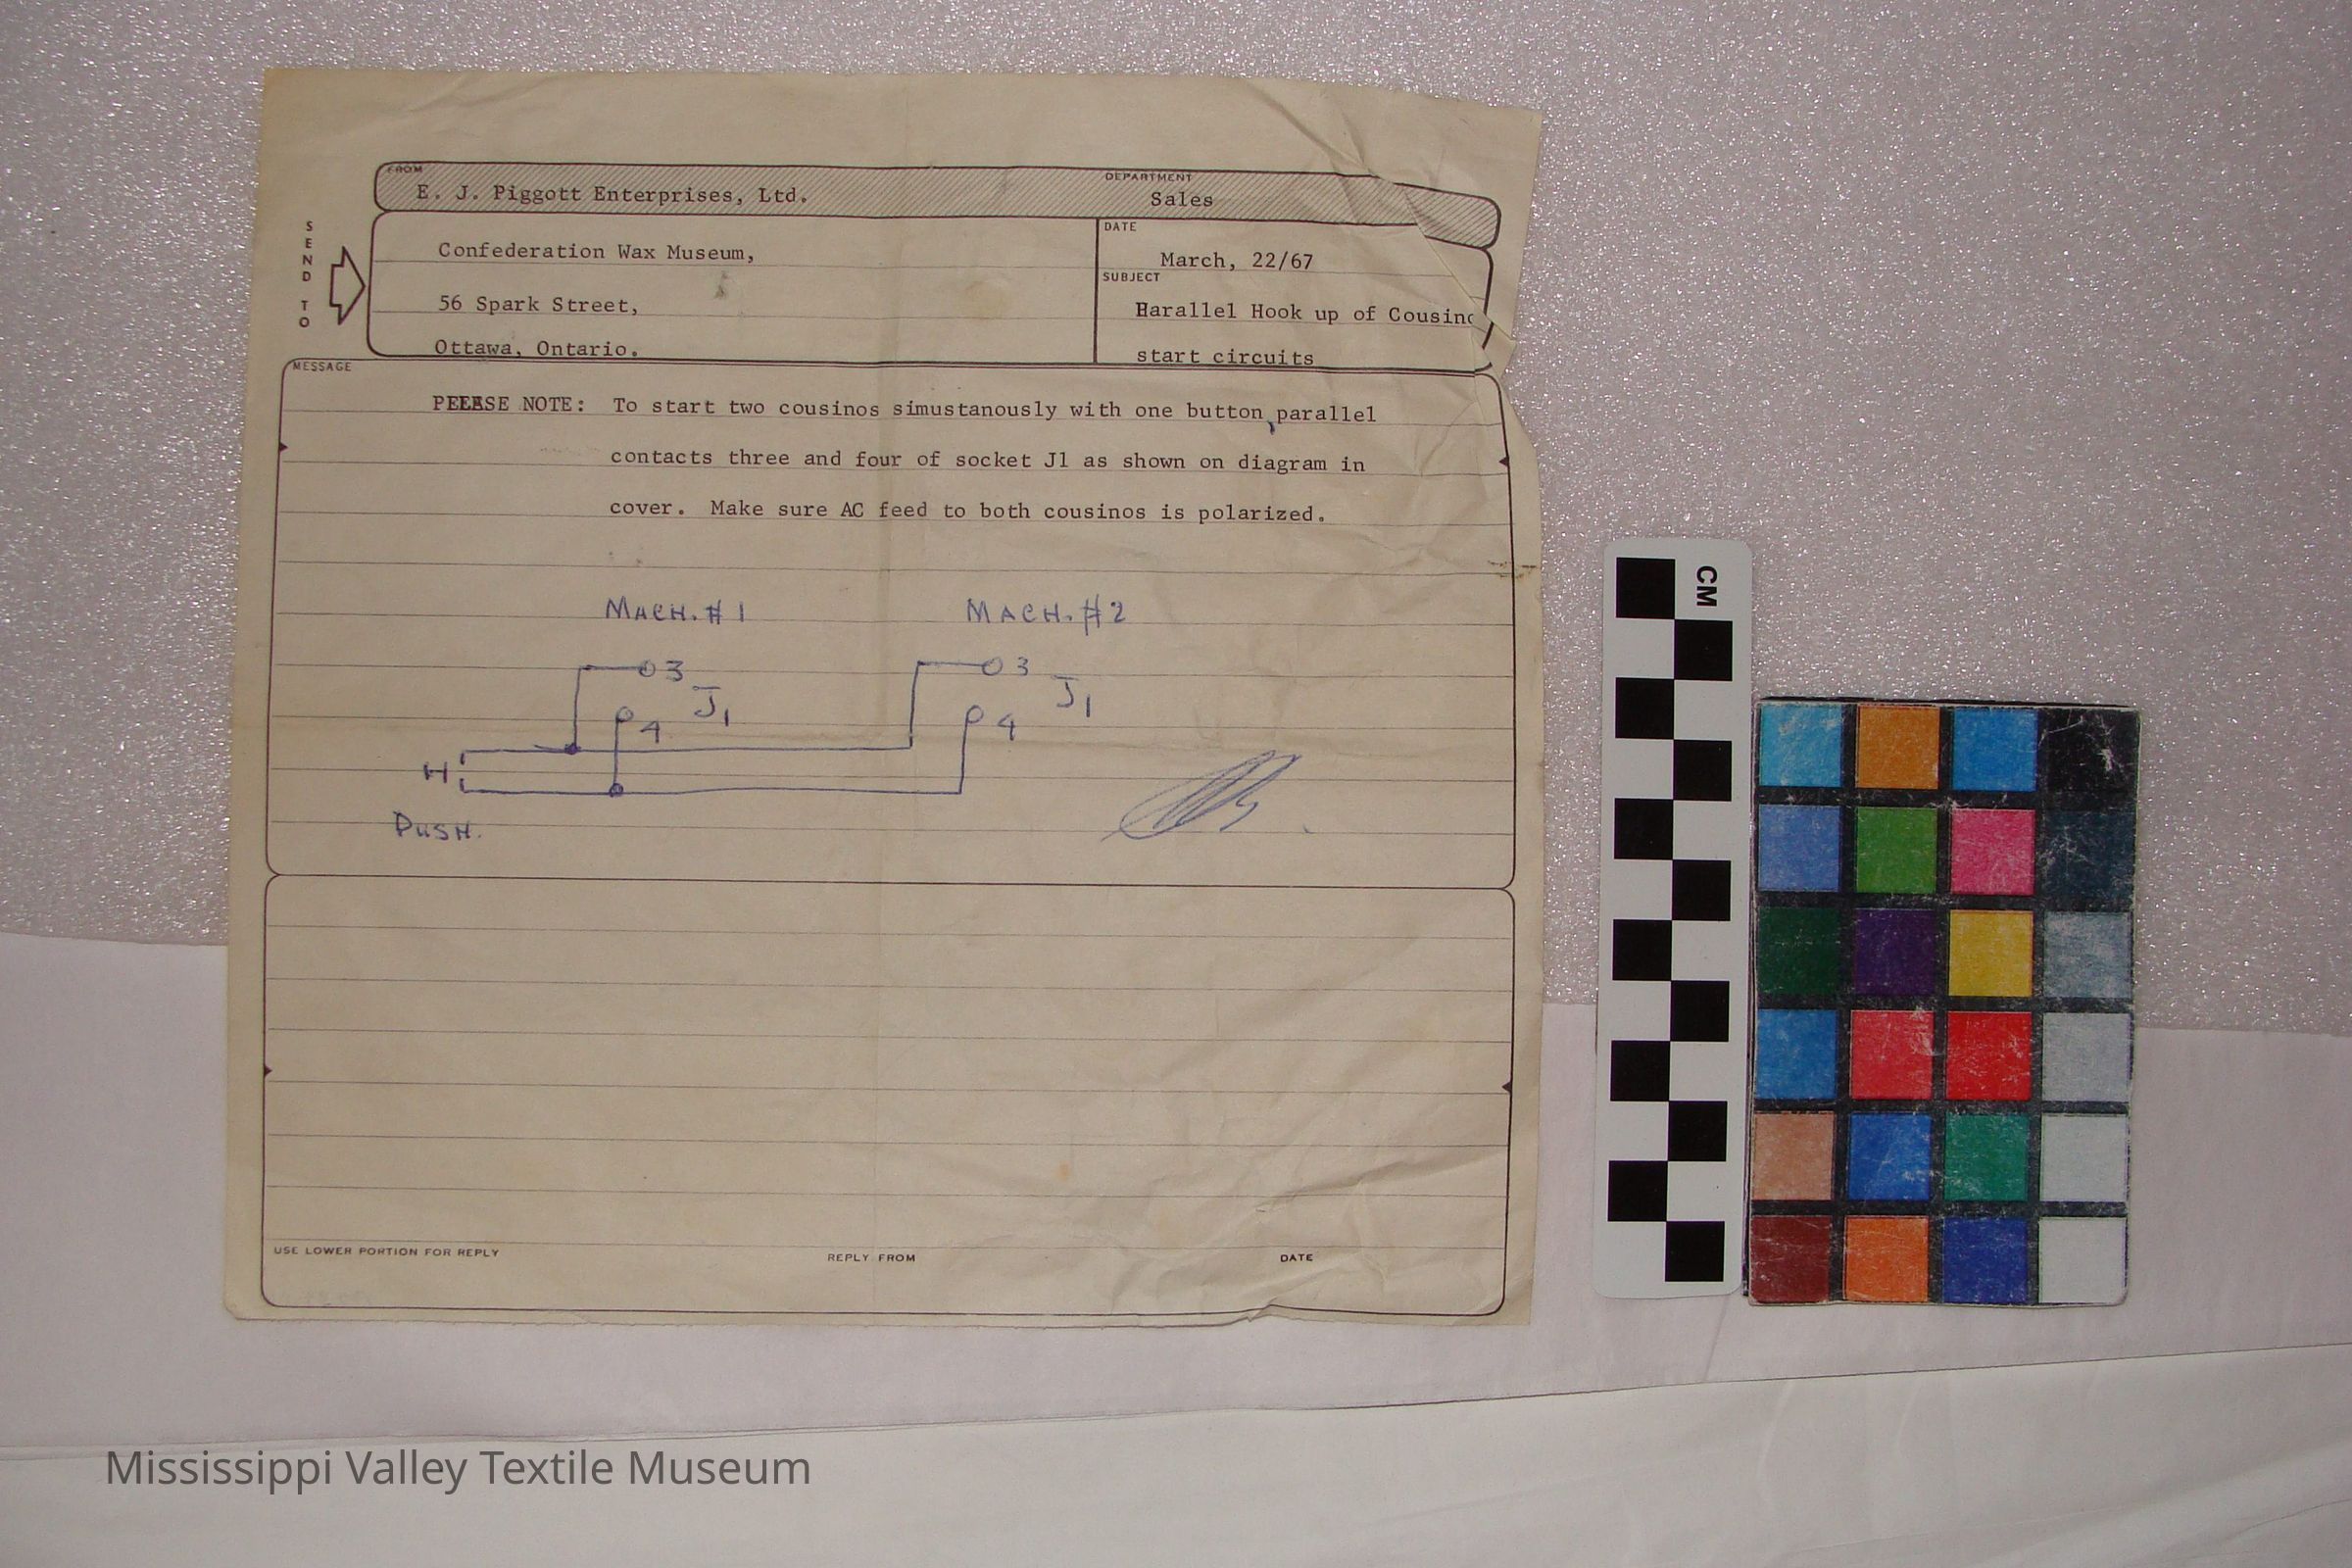 FROM
E. J. Piggott Enterprises, Ltd.
DEPARTMENT
Sales
SEND TO
Confederation Wax Museum,
56 Spark Street,
Ottawa, Ontario.
DATE
March, 22/67
SUBJECT
Parallel Hook up of Cousino
start circuits
MESSAGE
PLEASE NOTE: To start two cousinos simustanously with one button, parallel
contacts three and four of socket J1 as shown on diagram in
cover. Make sure AC feed to both cousinos is polarized.
MACH. #1 MACH. #2
3 3
J1 J1
4 4
H
PUSH.
USE LOWER PORTION FOR REPLY REPLY FROM DATE
CM
Mississippi Valley Textile Museum